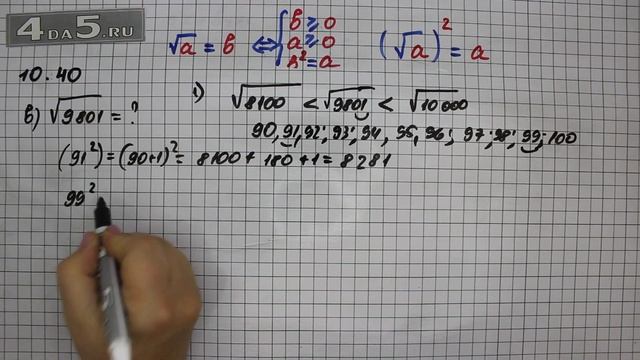 4DA5.RU
√a = b ⇔ { b ⩾ 0
a ⩾ 0
b² = a
(√a)² = a
10.40
в) √9801 = ?
1) √8100 < √9801 < √10000
90, 91, 92, 93, 94, 95, 96, 97, 98, 99, 100
(91²) = (90+1)² = 8100 + 180 + 1 = 8281
99²